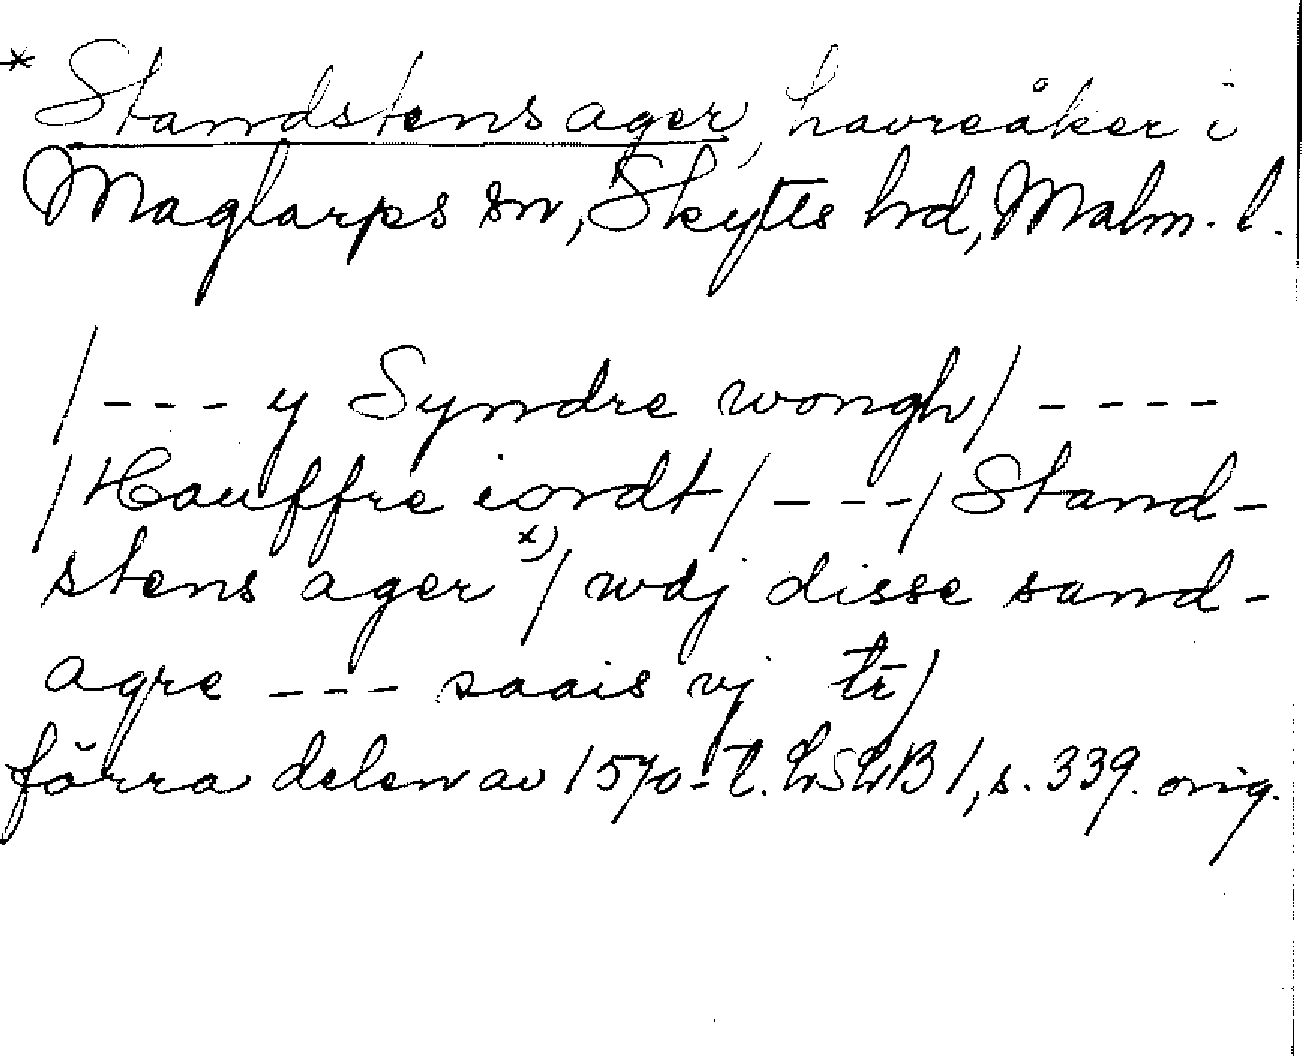 * Standstens ager, havreåker i
Maglarps sn, Skytts hd, Malm. l.
/--- y Syndre wongh/ ----
/Hauffre iordt/ ---/ Stand-
stens ager x)/ wdj disse sand-
agre --- saais vj tr/
förra delen av 1570-t. LSLB 1, s. 339. orig.